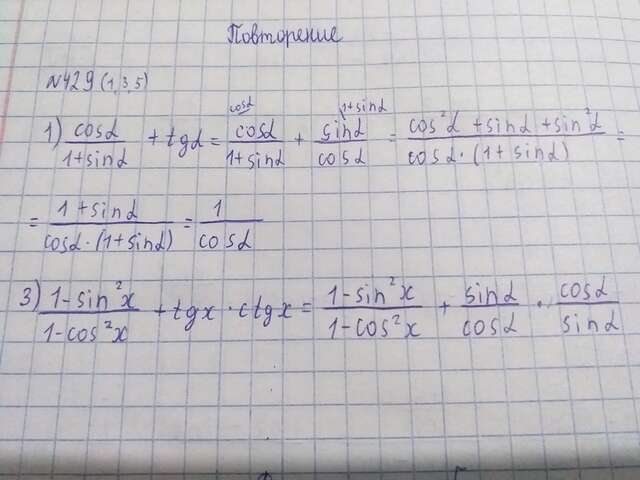 Повторение
№429 (1,3,5)
1) cosα/(1+sinα) + tgα = cosα/(1+sinα) (cosα + sinα/cosα (1+sinα = (cos²α + sinα + sin²α)/(cosα·(1+sinα)) =
= (1+sinα)/(cosα·(1+sinα)) = 1/cosα
3) (1-sin²x)/(1-cos²x) + tgx·ctgx = (1-sin²x)/(1-cos²x) + sinα/cosα · cosα/sinα